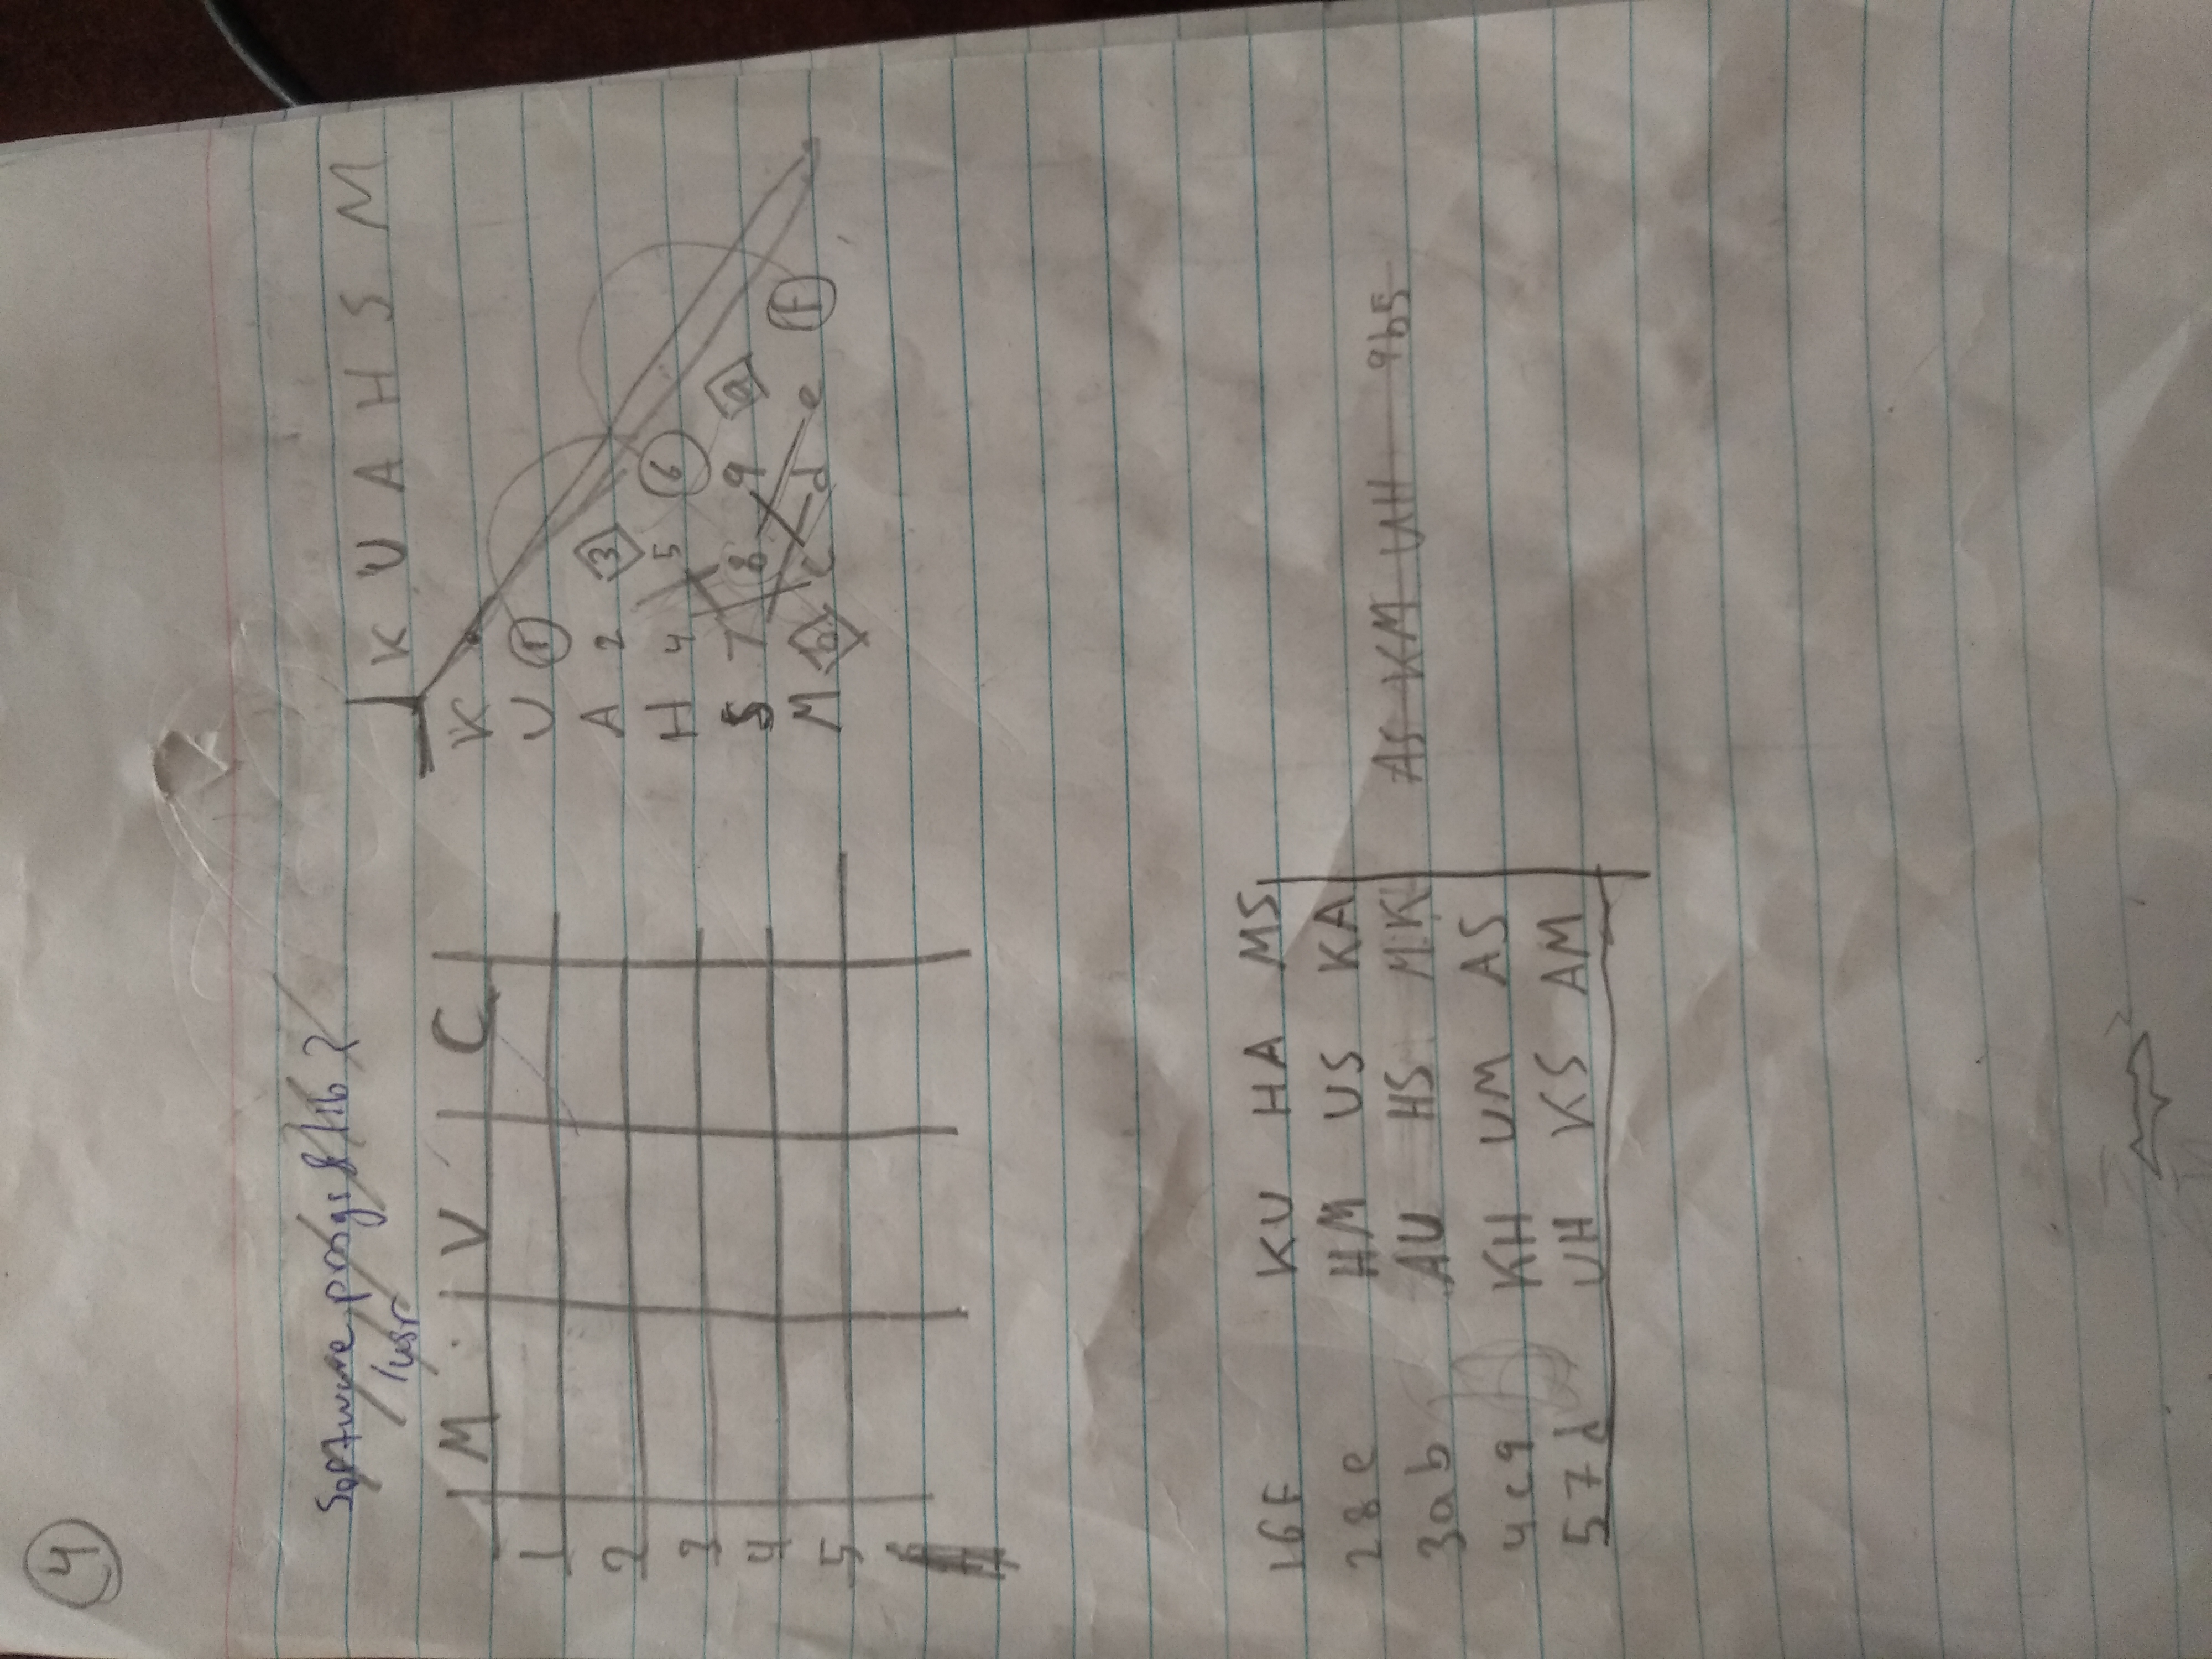 4
Software progs & lib?
/usr
M V C
1
2
3
4
5
K U A H S M
K
U 1
A 2 3
H 4 5 6
S 7 8 9 a
M b c d e F
16F KU HA MS
28e HM US KA
3ab AU HS MK AS KM UH 9b5
4c9 KH UM AS
57d UH KS AM